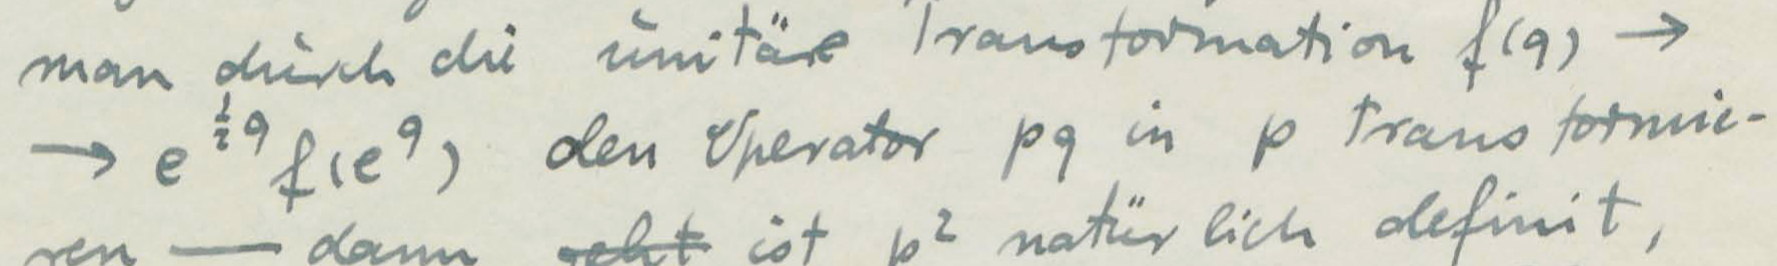 man durch die unitäre Transformation f(q) →
→ e^{½q} f(e^q) den Operator pq in p transformie-
ren — dann ist p² natürlich definit,